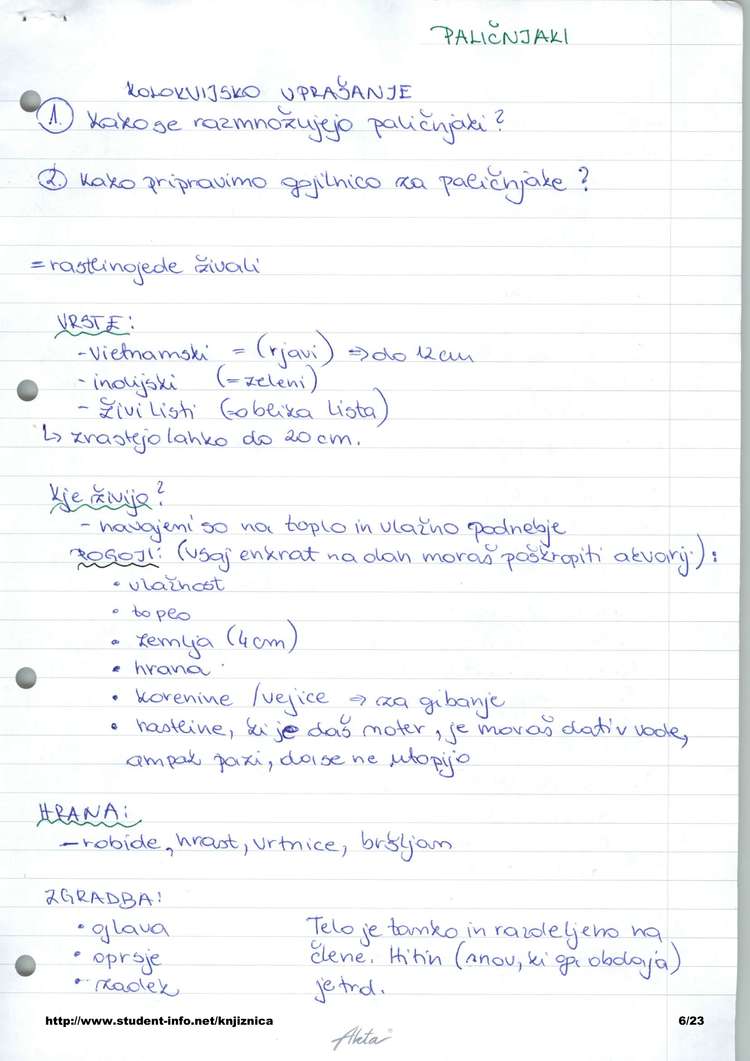 PALIČNJAKI
KOLOKVIJSKO VPRAŠANJE
1. Kako se razmnožujejo paličnjaki?
2. Kako pripravimo gojilnico za paličnjake?
= rastlinojede živali
VRSTE:
- Vietnamski = (rjavi) ⇒ do 12 cm
- indijski (= zeleni)
- živi listi (= oblika lista)
↳ zrastejo lahko do 20 cm.
Kje živijo?
- navajeni so na toplo in vlažno podnebje
POGOJI: (vsaj enkrat na dan moraš poškropiti akvarij.):
• vlažnost
• toplo
• zemlja (4cm)
• hrana
• korenine / vejice ⇒ za gibanje
• rastline, ki je daš noter, je moraš dati v vode,
ampak pazi, da se ne utopijo
HRANA:
- robide, hrast, vrtnice, bršljan
ZGRADBA:
• glava
• oprsje
• zadek
Telo je tanko in razdeljeno na
člene. Hitin (snov, ki ga obdaja)
je trd.
http://www.student-info.net/knjiznica
6/23